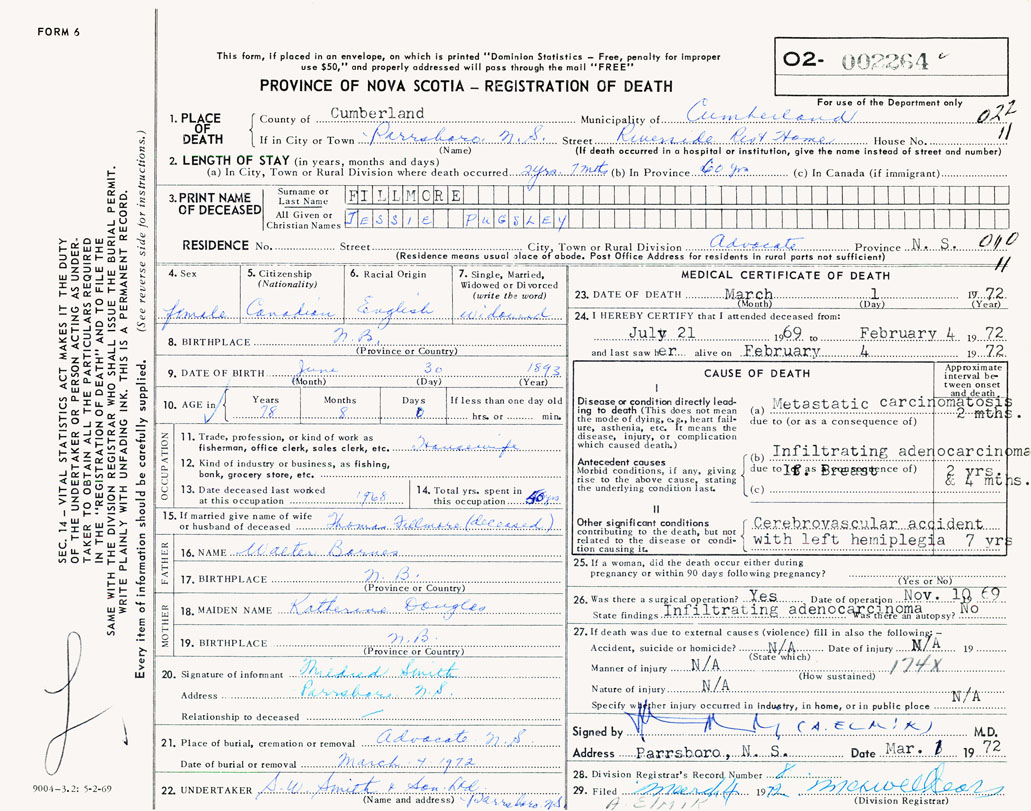 FORM 6
This form, if placed in an envelope, on which is printed "Dominion Statistics – Free, penalty for improper
use $50," and properly addressed will pass through the mail "FREE"
O2- 002264
For use of the Department only
PROVINCE OF NOVA SCOTIA – REGISTRATION OF DEATH
022
11
1. PLACE OF DEATH
County of Cumberland Municipality of Cumberland
If in City or Town Parrsboro N.S. Street Riverside Rest Home House No.
(Name) (If death occurred in a hospital or institution, give the name instead of street and number)
2. LENGTH OF STAY (in years, months and days)
(a) In City, Town or Rural Division where death occurred 2 yrs. 7 mths (b) In Province 60 yrs (c) In Canada (if immigrant)
3. PRINT NAME OF DECEASED
Surname or Last Name FILLMORE
All Given or Christian Names JESSIE PUGSLEY
RESIDENCE No. Street City, Town or Rural Division Advocate Province N. S. 010
11
(Residence means usual place of abode. Post Office Address for residents in rural parts not sufficient)
4. Sex
female
5. Citizenship
(Nationality)
Canadian
6. Racial Origin
English
7. Single, Married,
Widowed or Divorced
(write the word)
Widowed
8. BIRTHPLACE N.B.
(Province or Country)
9. DATE OF BIRTH June 30 1893
(Month) (Day) (Year)
10. AGE in Years Months Days If less than one day old
78 8 0 hrs. or min.
OCCUPATION
11. Trade, profession, or kind of work as
fisherman, office clerk, sales clerk, etc. Housewife
12. Kind of industry or business, as fishing,
bank, grocery store, etc.
13. Date deceased last worked
at this occupation 1968
14. Total yrs. spent in
this occupation 50 yrs
15. If married give name of wife
or husband of deceased Thomas Fillmore (deceased)
FATHER
16. NAME Walter Barnes
17. BIRTHPLACE N.B.
(Province or Country)
MOTHER
18. MAIDEN NAME Katherine Douglas
19. BIRTHPLACE N.B.
(Province or Country)
20. Signature of informant Mildred Smith
Address Parrsboro N.S.
Relationship to deceased
21. Place of burial, cremation or removal Advocate N.S.
Date of burial or removal March 4 1972
22. UNDERTAKER S.W. Smith & Son Ltd
(Name and address) Parrsboro NS
MEDICAL CERTIFICATE OF DEATH
23. DATE OF DEATH March 1 1972
(Month) (Day) (Year)
24. I HEREBY CERTIFY that I attended deceased from:
July 21 1969 to February 4 1972
and last saw her alive on February 4 1972.
CAUSE OF DEATH
Approximate
interval be-
tween onset
and death
I
Disease or condition directly lead-
ing to death (This does not mean
the mode of dying, e.g., heart fail-
ure, asthenia, etc. It means the
disease, injury, or complication
which caused death.)
(a) Metastatic carcinomatosis
2 mths.
due to (or as a consequence of)
Antecedent causes
Morbid conditions, if any, giving
rise to the above cause, stating
the underlying condition last.
(b) Infiltrating adenocarcinoma
due to (or as a consequence of) lt. Breast 2 yrs.
& 4 mths.
(c)
II
Other significant conditions
contributing to the death, but not
related to the disease or condi-
tion causing it.
Cerebrovascular accident
with left hemiplegia 7 yrs
25. If a woman, did the death occur either during
pregnancy or within 90 days following pregnancy?
(Yes or No)
26. Was there a surgical operation? Yes Date of operation Nov. 10 69
State findings Infiltrating adenocarcinoma Was there an autopsy? No
27. If death was due to external causes (violence) fill in also the following:–
Accident, suicide or homicide? N/A Date of injury N/A 19
(State which)
Manner of injury N/A 174X
(How sustained)
Nature of injury N/A
Specify whether injury occurred in industry, in home, or in public place N/A
Signed by (A. ELMIK) M.D.
Address Parrsboro, N. S. Date Mar. 1 1972
28. Division Registrar's Record Number 8
29. Filed March 4 1972
(Division Registrar)
A. ELMIK
SEC. 14 – VITAL STATISTICS ACT MAKES IT THE DUTY
OF THE UNDERTAKER OR PERSON ACTING AS UNDER-
TAKER TO OBTAIN ALL THE PARTICULARS REQUIRED
IN THE "REGISTRATION OF DEATH" AND TO FILE THE
SAME WITH THE DIVISION REGISTRAR WHO SHALL ISSUE THE BURIAL PERMIT.
WRITE PLAINLY WITH UNFADING INK. THIS IS A PERMANENT RECORD.
Every item of information should be carefully supplied. (See reverse side for instructions.)
9004-3.2: 5-2-69